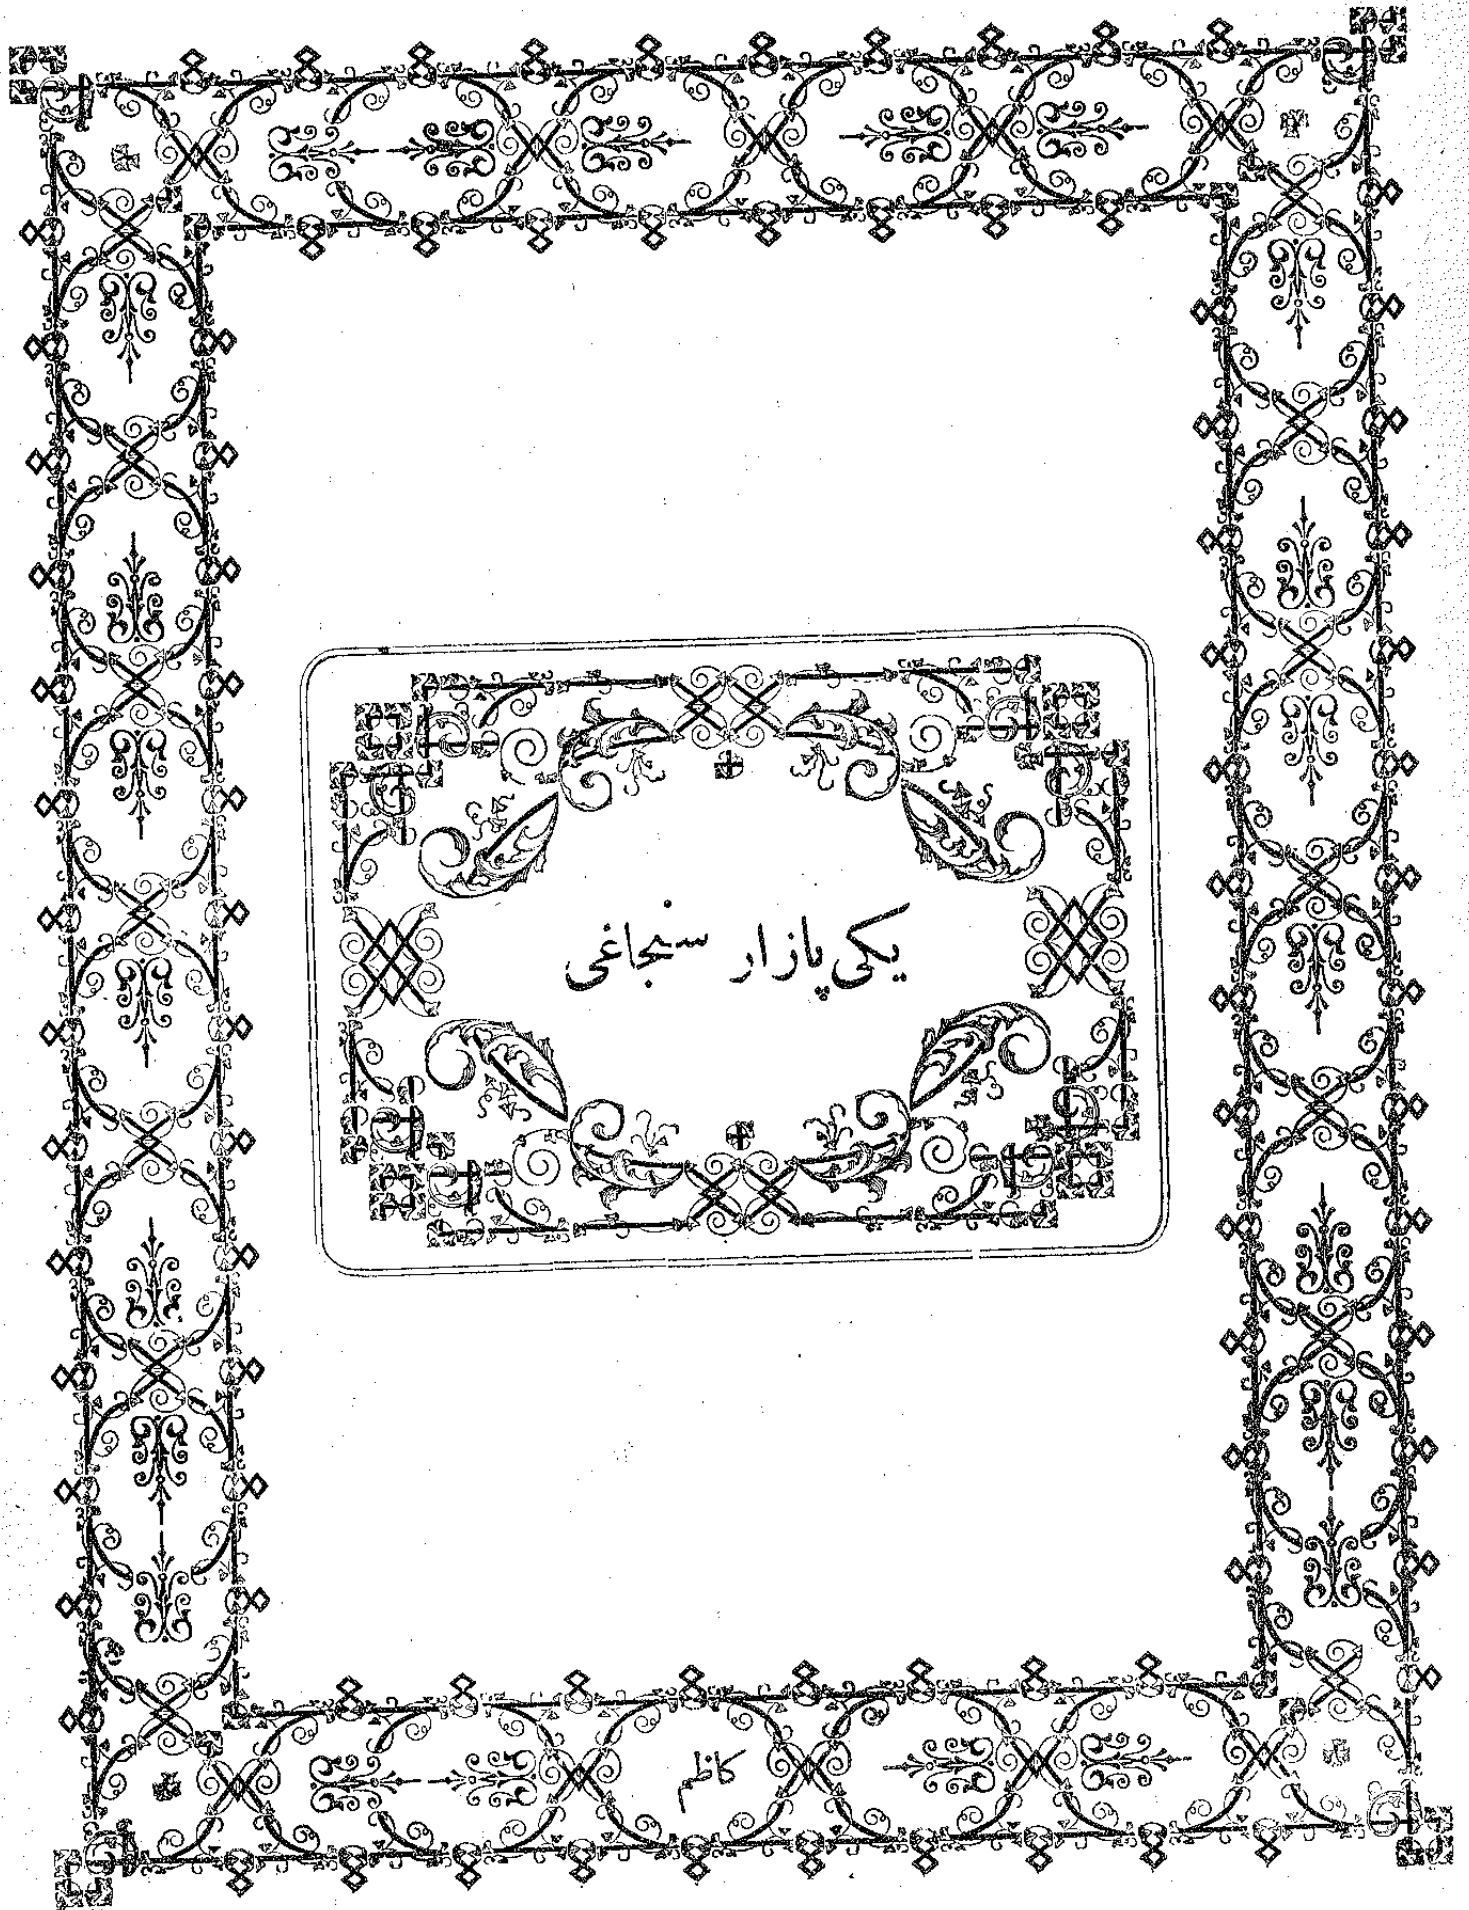 یکی پازار سنجاغی
کاظم